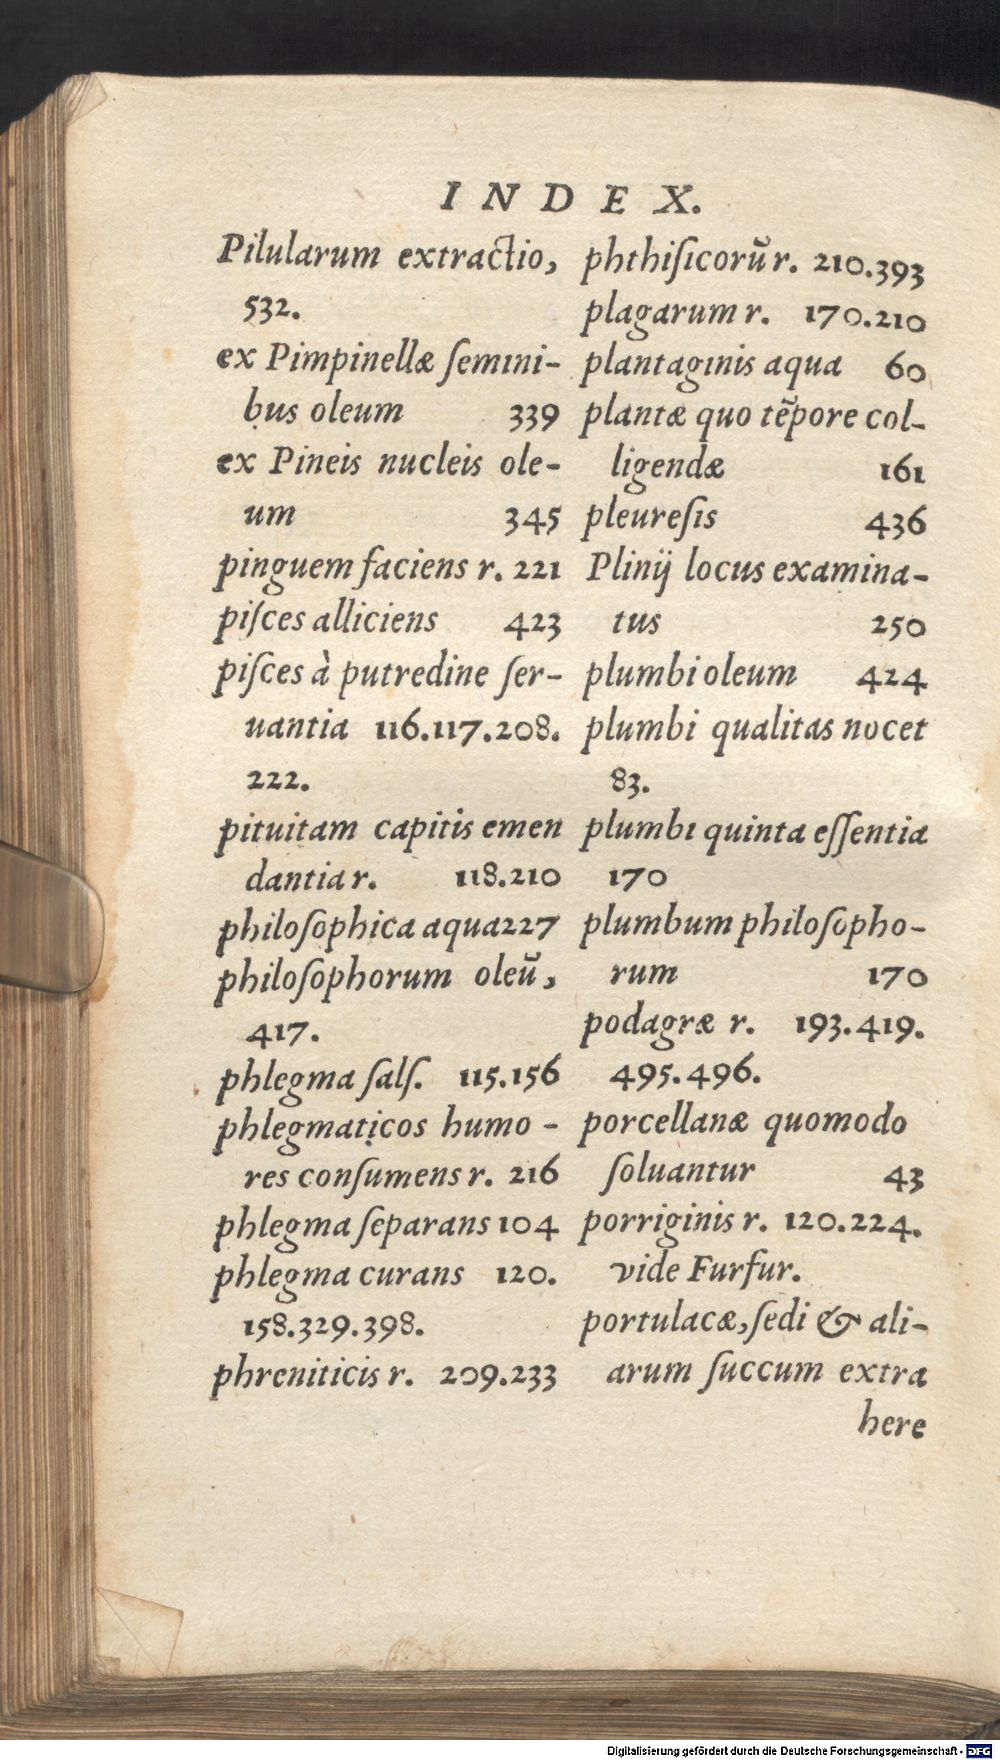 INDEX.
Pilularum extractio,
532.
ex Pimpinellæ ſemini-
bus oleum 339
ex Pineis nucleis ole-
um 345
pinguem faciens r. 221
piſces alliciens 423
piſces à putredine ſer-
uantia 116.117.208.
222.
pituitam capitis emen
dantia r. 118.210
philoſophica aqua 227
philoſophorum oleũ,
417.
phlegma ſalſ. 115.156
phlegmaticos humo-
res conſumens r. 216
phlegma ſeparans 104
phlegma curans 120.
158.329.398.
phreniticis r. 209.233
phthiſicorũ r. 210.393
plagarum r. 170.210
plantaginis aqua 60
plantæ quo tẽpore col-
ligendæ 161
pleureſis 436
Plinij locus examina-
tus 250
plumbi oleum 424
plumbi qualitas nocet
83.
plumbi quinta eſſentia
170
plumbum philoſopho-
rum 170
podagræ r. 193.419.
495.496.
porcellanæ quomodo
ſoluantur 43
porriginis r. 120.224.
vide Furfur.
portulacæ, ſedi & ali-
arum ſuccum extra
here
Digitalisierung gefördert durch die Deutsche Forschungsgemeinschaft - DFG